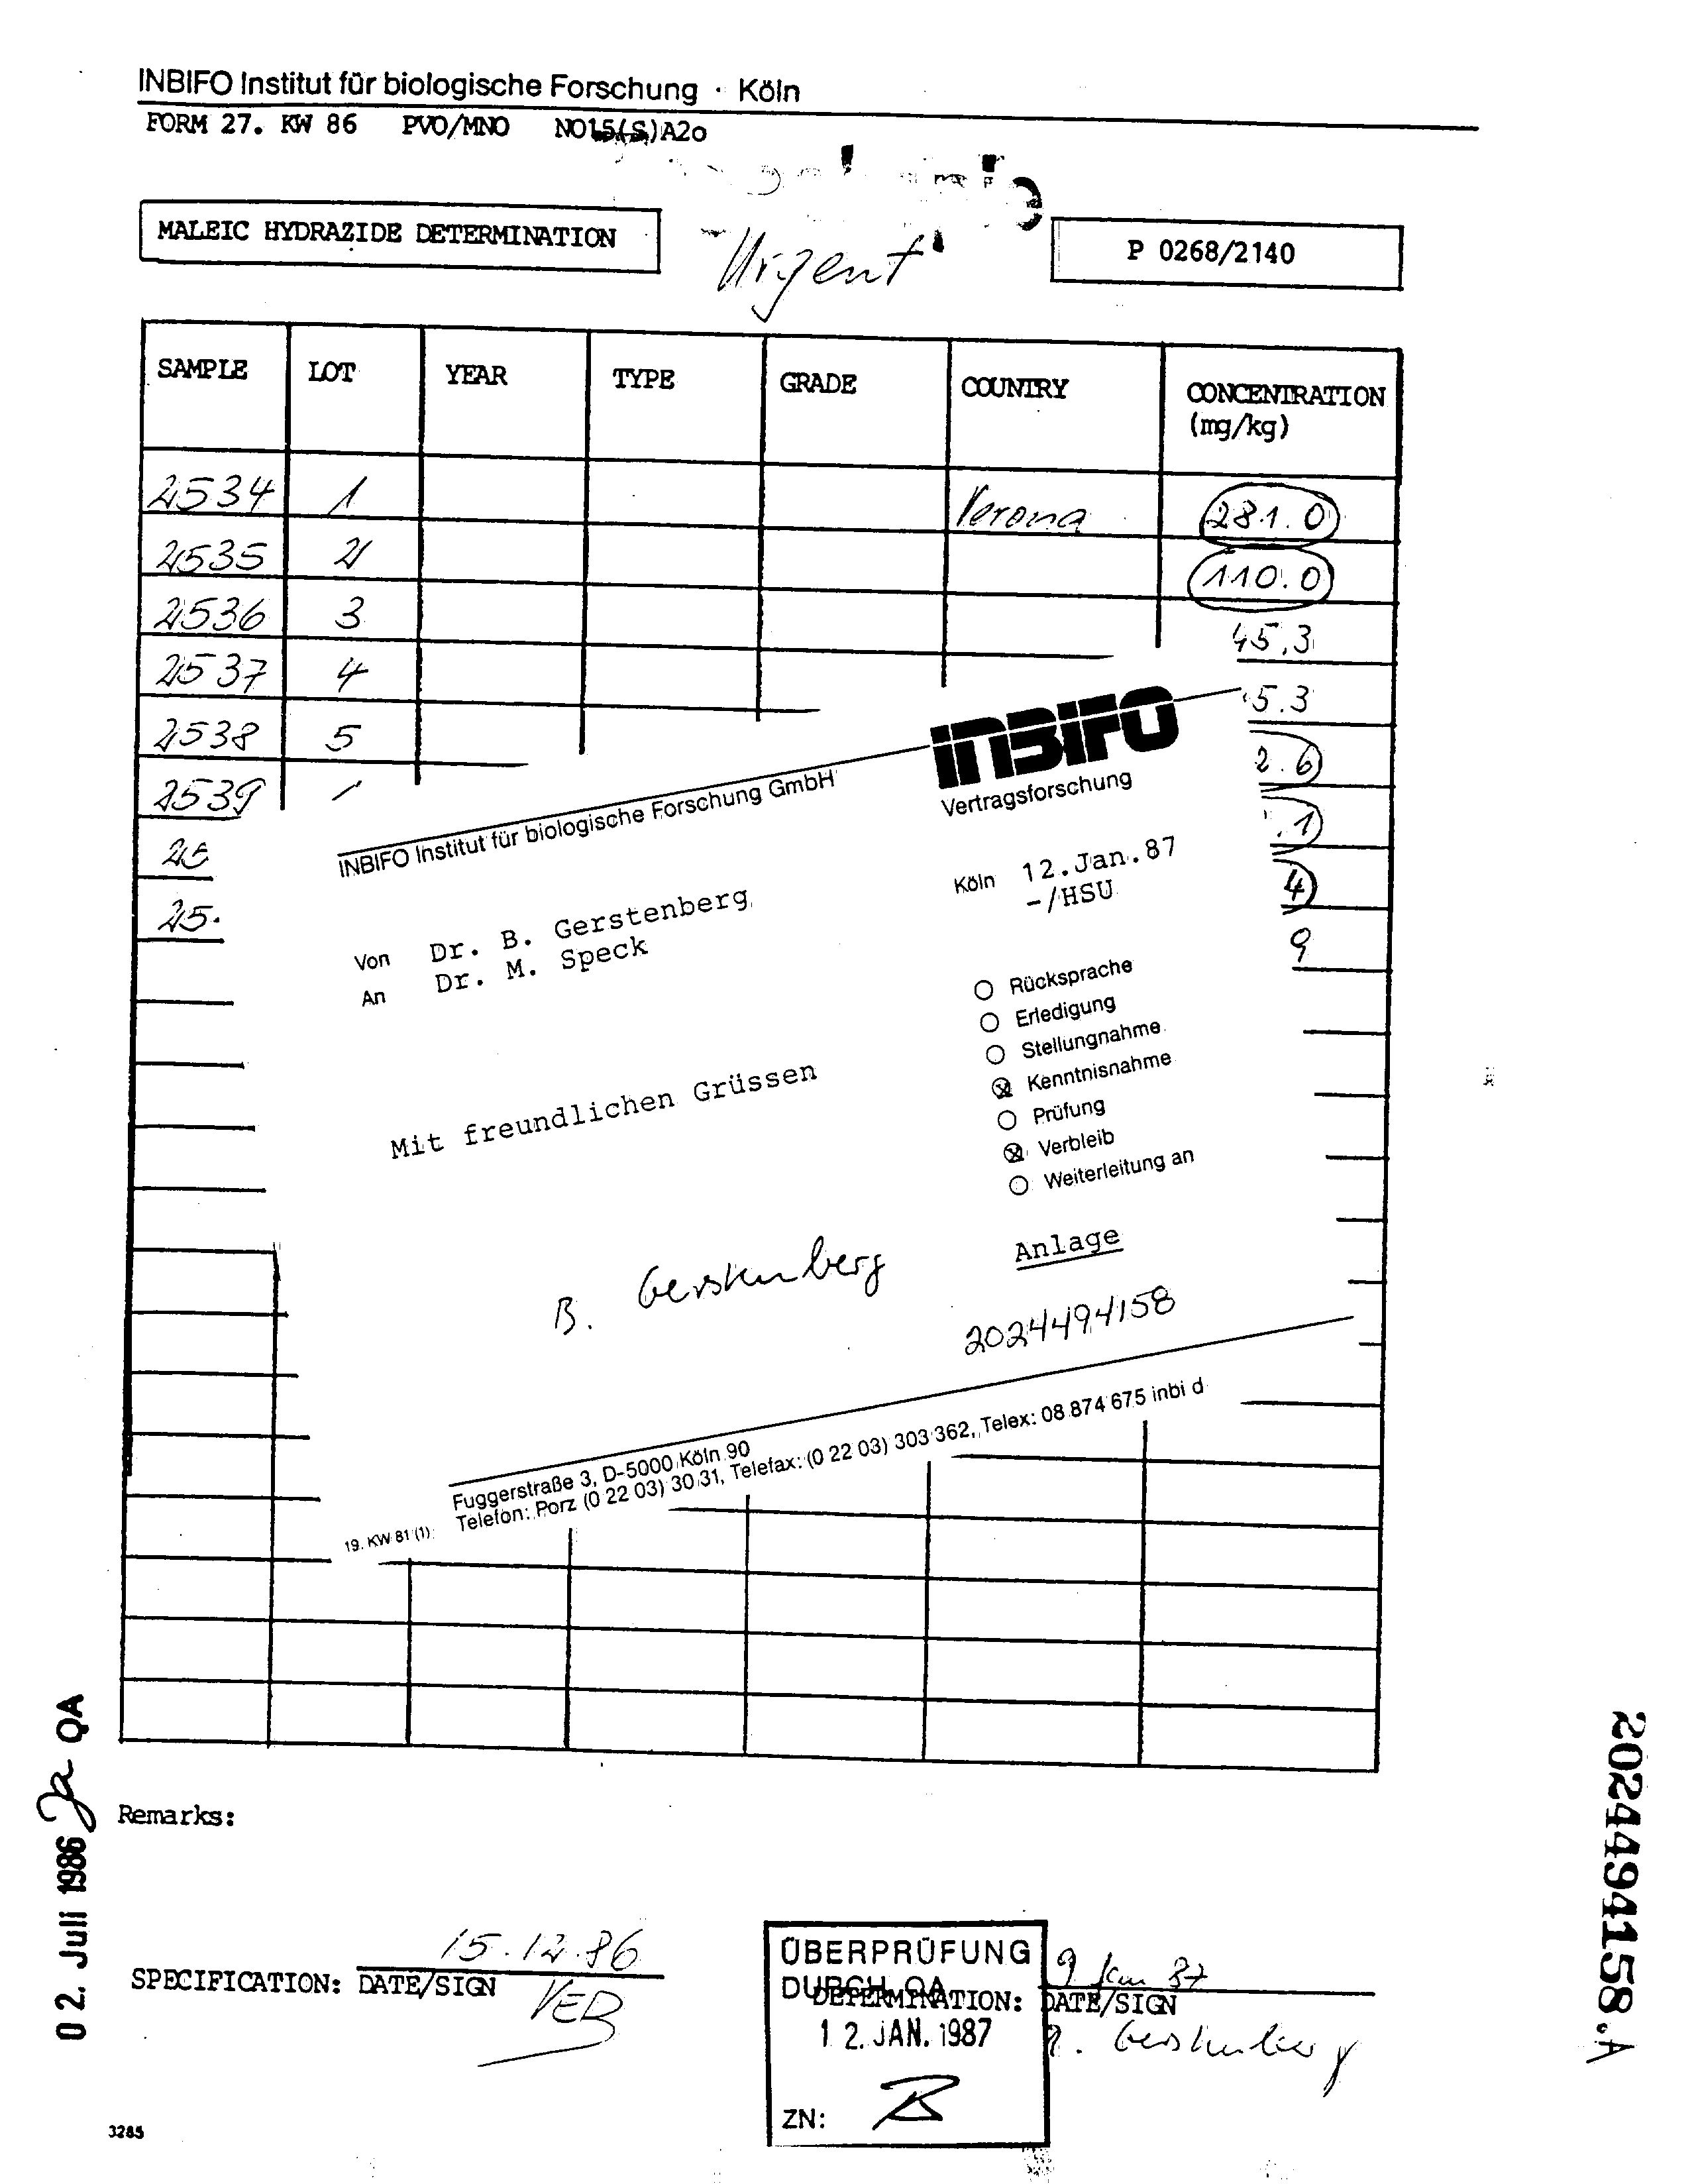 INBIFO Institut für biologische Forschung · Köln
FORM 27. KW 86 PVO/MNO NO15(S)A2o
MALEIC HYDRAZIDE DETERMINATION
Urgent
P 0268/2140
SAMPLE LOT YEAR TYPE GRADE COUNTRY CONCENTRATION
(mg/kg)
2534 1 Verona 281.0
2535 2 110.0
2536 3 45,3
2537 4 5.3
2538 5 2.6
2539 1 .1
25 4
25. 9
INBIFO
Vertragsforschung
INBIFO Institut für biologische Forschung GmbH
Köln 12.Jan.87
-/HSU
Von Dr. B. Gerstenberg
An Dr. M. Speck
Rücksprache
Erledigung
Stellungnahme
Kenntnisnahme
Prüfung
Verbleib
Weiterleitung an
Mit freundlichen Grüssen
Anlage
B. Gerstenberg
2024494158
Fuggerstraße 3, D-5000 Köln 90
Telefon: Porz (0 22 03) 30 31, Telefax: (0 22 03) 303 362, Telex: 08 874 675 inbi d
19. KW 81 (1)
Remarks:
SPECIFICATION: DATE/SIGN
15.12.86
VEB
ÜBERPRÜFUNG
DURCH QA
12. JAN. 1987
ZN:
DETERMINATION: DATE/SIGN
9 Jan 87
B. Gerstenberg
3285
02. Juli 1986 QA
2024494158.A